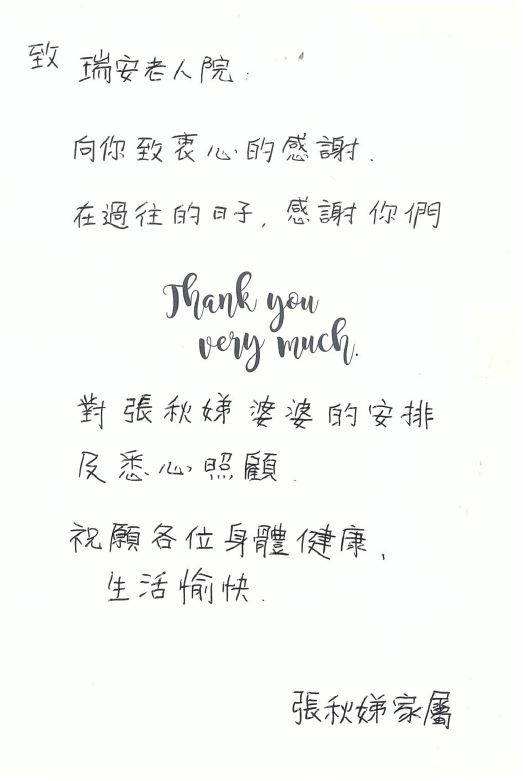 致 瑞安老人院:
向你致衷心的感謝.
在過往的日子, 感謝你們
Thank you
very much.
對張秋娣婆婆的安排
及悉心照顧.
祝願各位身體健康,
生活愉快.
張秋娣家屬